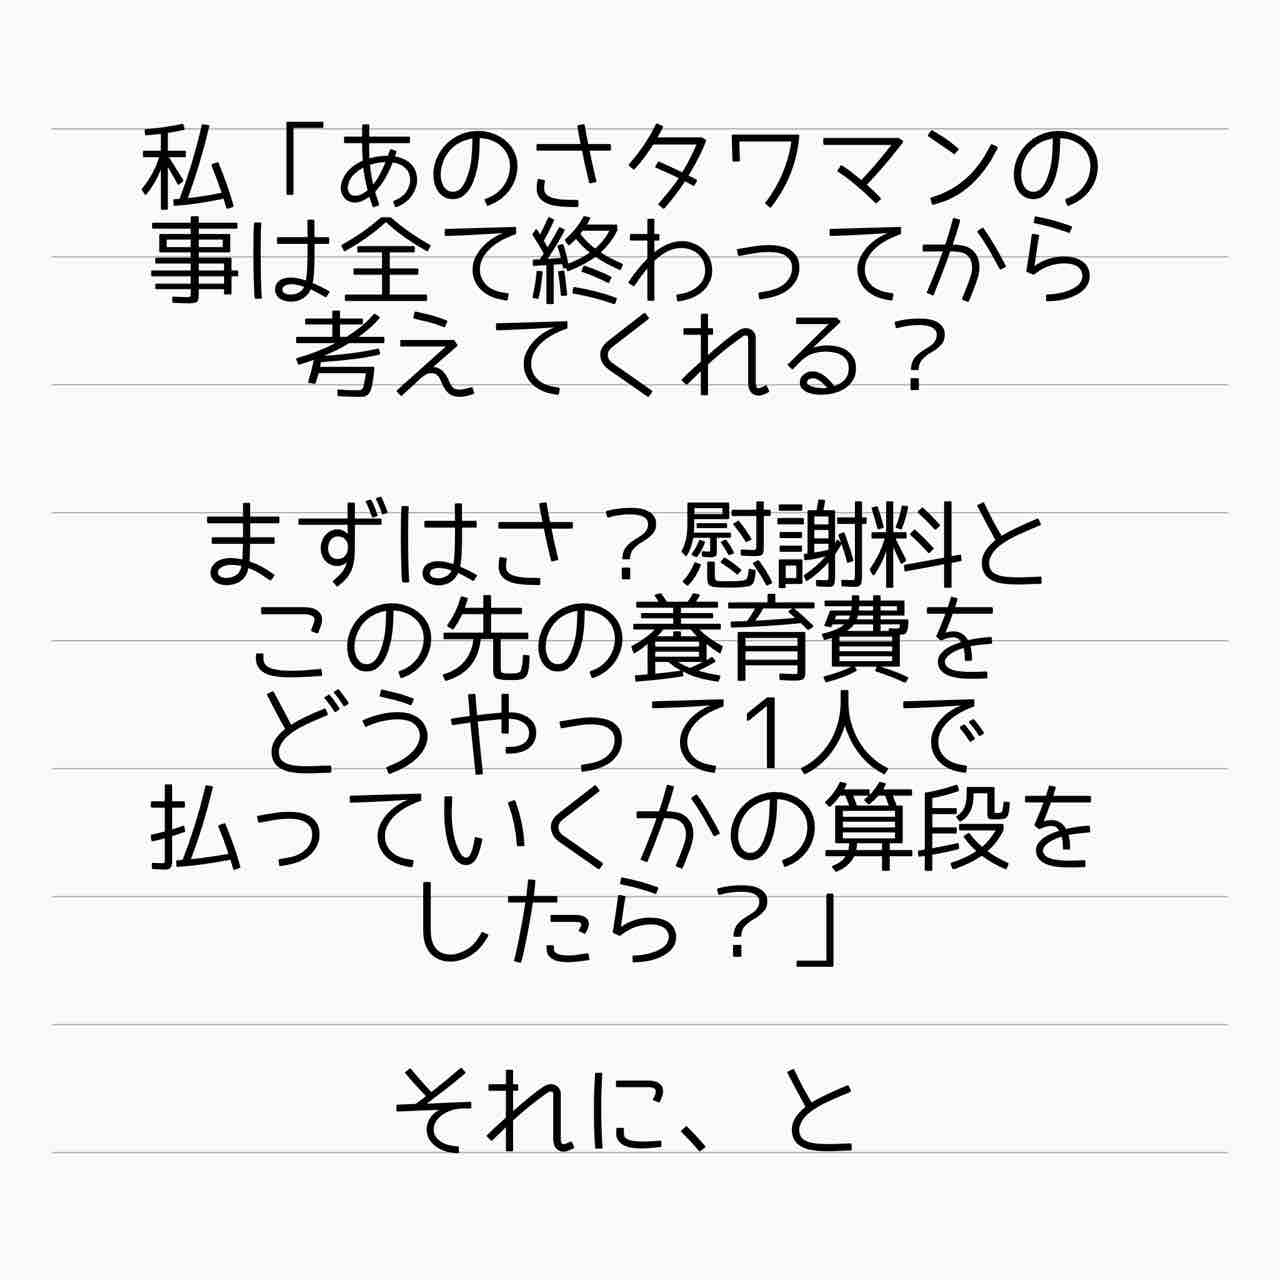 私「あのさタワマンの
事は全て終わってから
考えてくれる？
まずはさ？慰謝料と
この先の養育費を
どうやって1人で
払っていくかの算段を
したら？」
それに、と